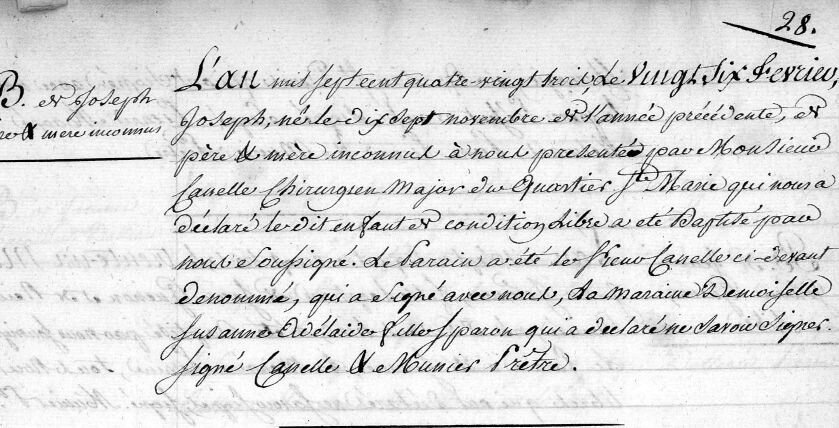 28.
L'an mil sept cent quatre-vingt trois, Le vingt six Fevrier,
B. de Joseph
Joseph, né le dix sept novembre de l'année précédente, de
re & mere inconnus
père & mère inconnus à nous presenté par Monsieur
Canelle Chirurgien Major du Quartier Ste Marie qui nous a
déclaré le dit enfant de condition Libre a eté Baptisé par
nous Soussigné. Le Parain a été le Sieur Canelle ci-devant
denommé, qui a Signé avec nous, La Maraine Demoiselle
Susanne Adélaide fille Sparon qui a declaré ne Savoir Signer.
signé Canelle & Munier Prêtre.